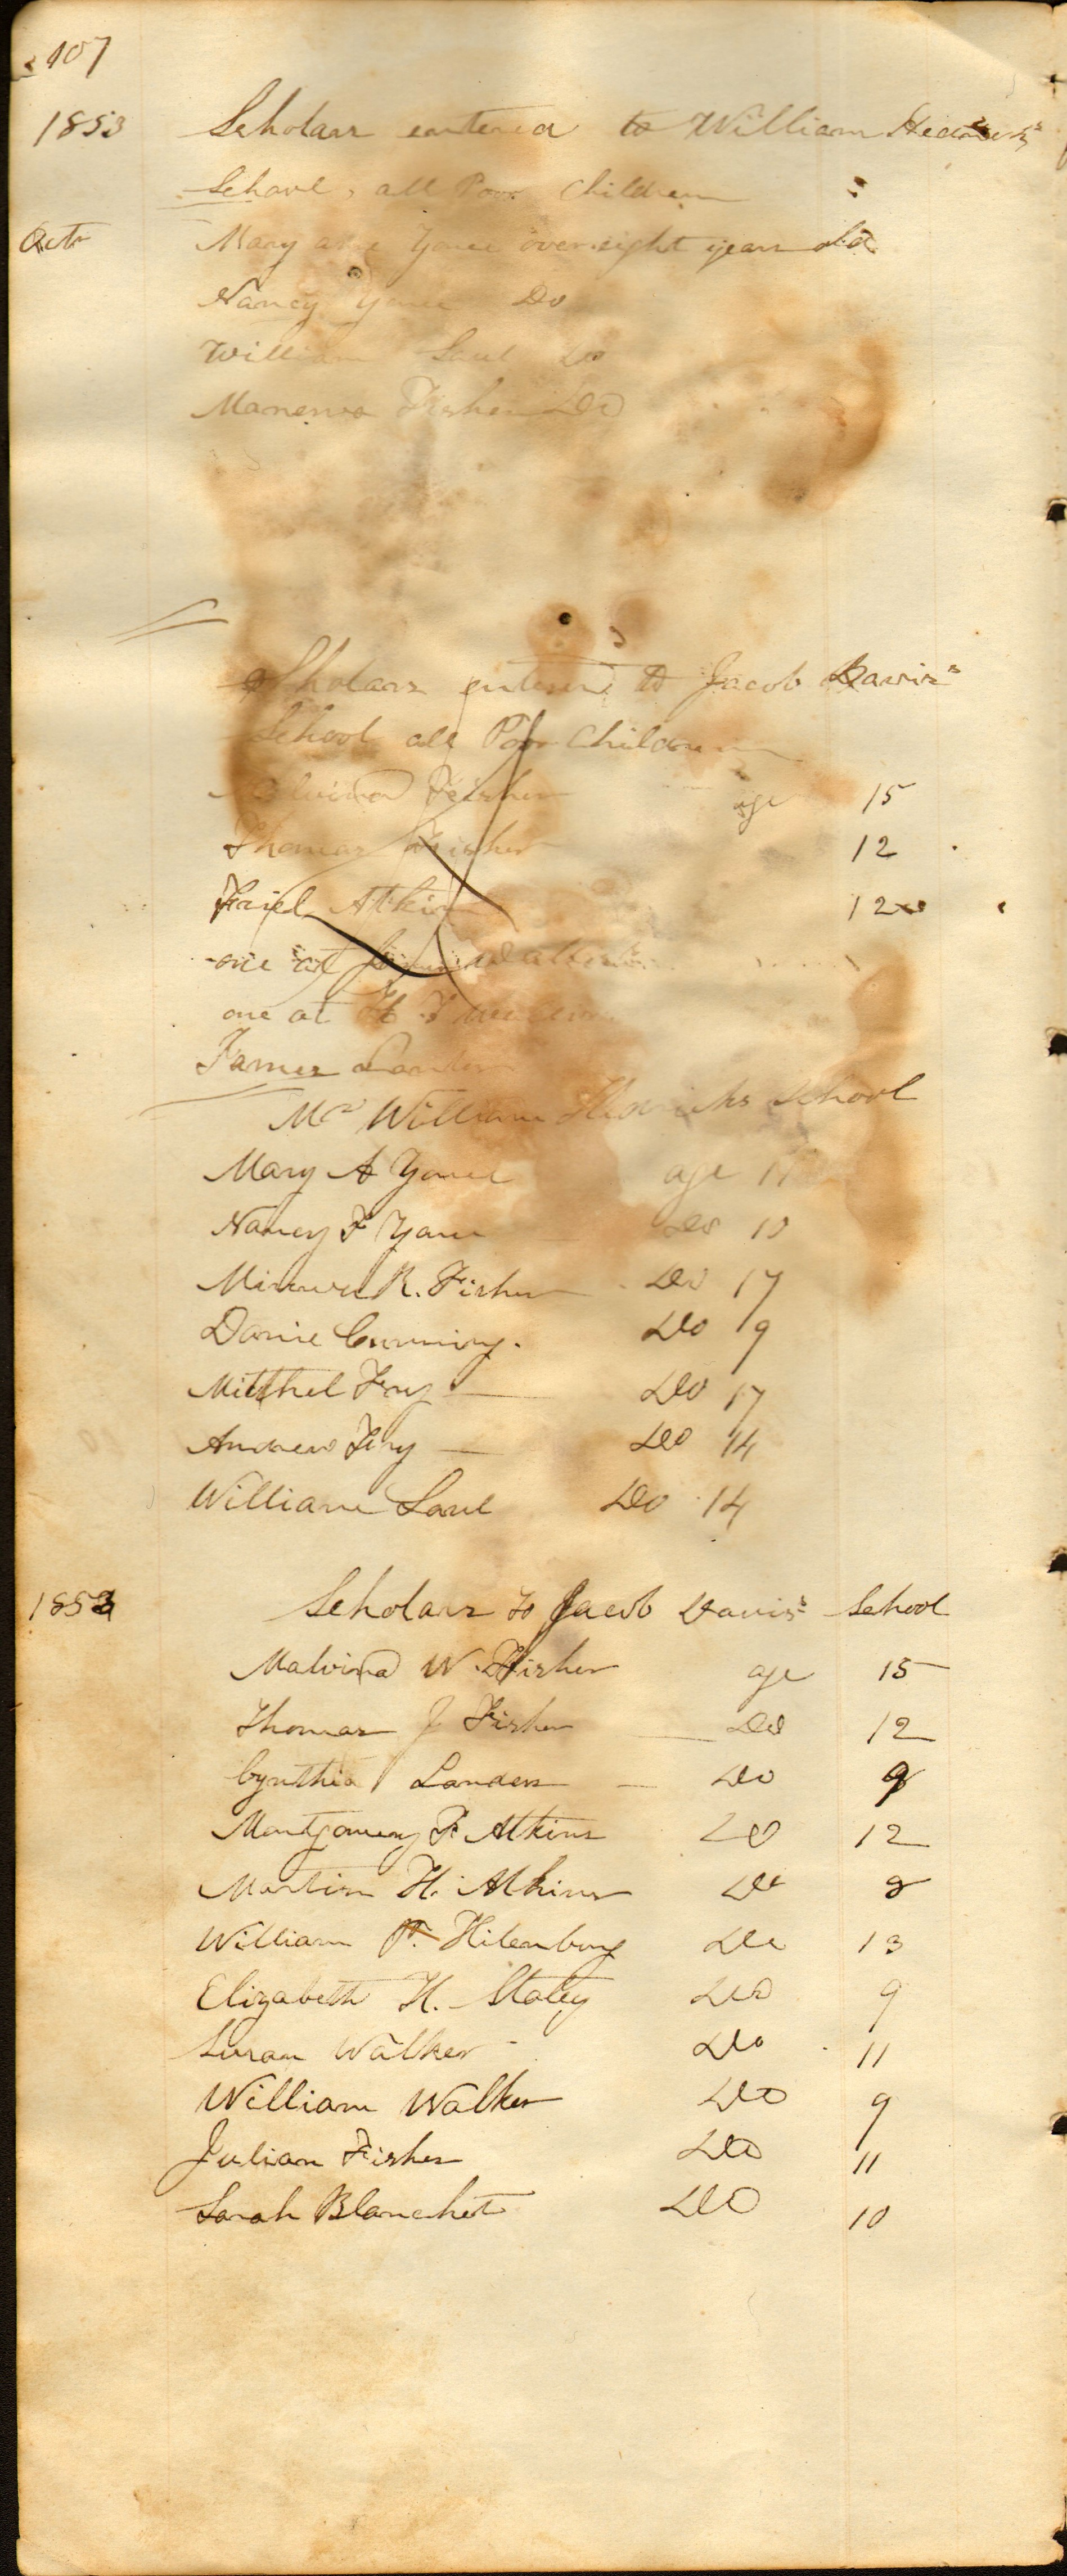 107
1853 Scholars entered to William
School, all Poor Children
Oct Mary ane Youce over eight years old
Nancy Youce Do
William Saul Do
Manerva Fisher Do
Scholars entered to Jacob Davis's
School all Poor Children
Malvina Feisher age 15
Thomas Fisher 12
Atkin 12
one at
one at H
James Landers
Mr William Hedricks School
Mary A Youce age
Nancy F Youce Do 10
Minerva R. Fisher Do 17
Do 9
Mitthel Fry Do 17
Andrew Fry Do 14
William Saul Do 14
1853 Scholars to Jacob Davis's School
Malvina W. Fisher age 15
Thomas J Fisher Do 12
Cynthia Landers Do 9
Montgomery F. Atkins Do 12
Martin H. Atkins Do 8
William P. Hilenburg Do 13
Elizabeth H. Staley Do 9
Susan Walker Do 11
William Walker Do 9
Julian Fisher Do 11
Sarah Blanchet Do 10